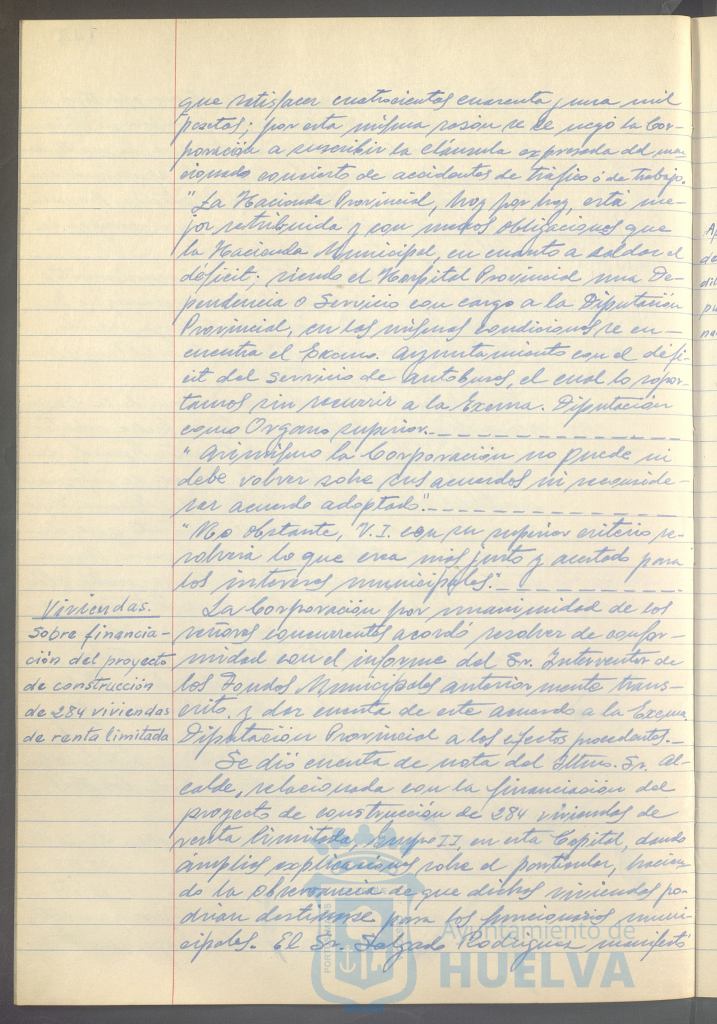 que satisfacer cuatrocientas cuarenta y una mil
pesetas; por esta misma razón se le negó la Cor-
poración a suscribir la cláusula expresada del me-
cionado concierto de accidentes de tráfico ó de trabajo.
"La Hacienda Provincial, hoy por hoy, está me-
jor retribuida y con menos obligaciones que
la Hacienda Municipal, en cuanto a saldar el
déficit; siendo el Hospital Provincial una De-
pendencia o Servicio con cargo a la Diputación
Provincial, en las mismas condiciones se en-
cuentra el Excmo. Ayuntamiento con el défi-
cit del servicio de autobuses, el cual lo sopor-
tamos sin recurrir a la Excma. Diputación
como Organo superior.
"Asimismo la Corporación no puede ni
debe volver sobre sus acuerdos ni reconside-
rar acuerdo adoptado".
"No obstante, V.I. con su superior criterio re-
solverá lo que crea más justo y acertado para
los intereses municipales."
Viviendas.
Sobre financia-
ción del proyecto
de construcción
de 284 viviendas
de renta limitada
La Corporación por unanimidad de los
señores concurrentes acordó resolver de confor-
midad con el informe del Sr. Interventor de
los Fondos Municipales anteriormente trans-
crito y dar cuenta de este acuerdo a la Excma.
Diputación Provincial a los efectos procedentes.
Se dió cuenta de nota del Iltmo. Sr. Al-
calde, relacionada con la financiación del
proyecto de construcción de 284 viviendas de
renta limitada, Grupo II, en esta Capital, dando
ámplias explicaciones sobre el particular, hacien-
do la observancia de que dichas viviendas po-
drían destinarse para los funcionarios muni-
cipales. El Sr. Salgado Rodríguez manifestó
Ayuntamiento de
HUELVA